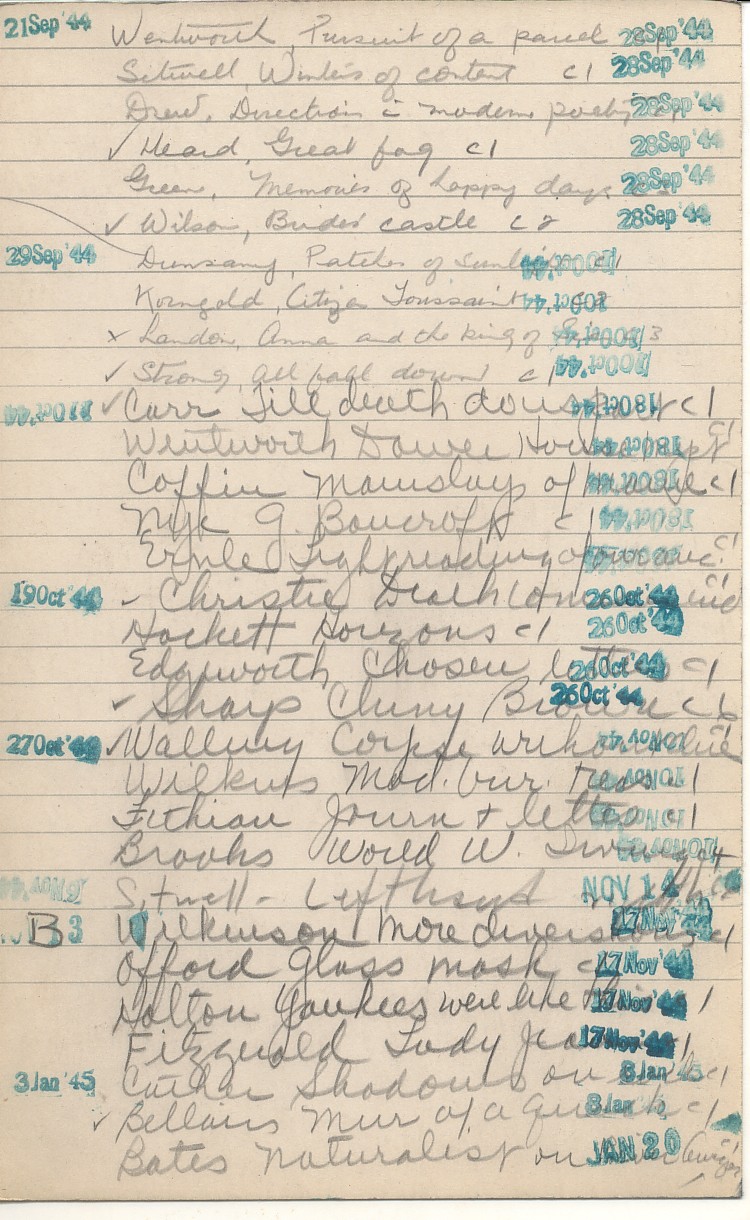 21Sep'44 Wentworth, Pursuit of a parcel 28Sep'44
Sitwell, Winters of content c1 28Sep'44
Drew, Directions in modern poetry 28Sep'44
✓ Heard, Great fog c1 28Sep'44
Green, Memories of happy days 28Sep'44
✓ Wilson, Brides' castle c2 28Sep'44
29Sep'44 Dunsany, Patches of sunlight c1
Korngold, Citizen Toussaint
x Landon, Anna and the king of 3
✓ Strong, All fall down c1
✓ Carr Till death do us part c1
Wentworth Dower House
Coffin Mainstays of c1
Nye G. Bancroft c1
Ernle Light reading of our anc. c1
19Oct'44 - Christie Death comes 26Oct'44 end
Hackett Horizons c1 26Oct'44
Edgworth Chosen letters 26Oct'44 c1
✓ Sharp Cluny Brown 26Oct'44 c6
27Oct'44 ✓ Corpse without
Wilkins Mod. bur. c1
Fithian Journ + letters c1
Brooks World W. Irving c4
Sitwell - Left hand NOV 14
B 3 Wilkinson More diversions 17Nov'44 c1
Offord Glass mask c1 17Nov'44
Holton Yankees were like this 17Nov'44 1
Fitzgerald Lady Jean 17Nov'44 1
3Jan'45 Cather Shadows on 8Jan'45 c1
✓ Bellairs Mur. of a quack 8Jan c1
Bates Naturalist on JAN 20